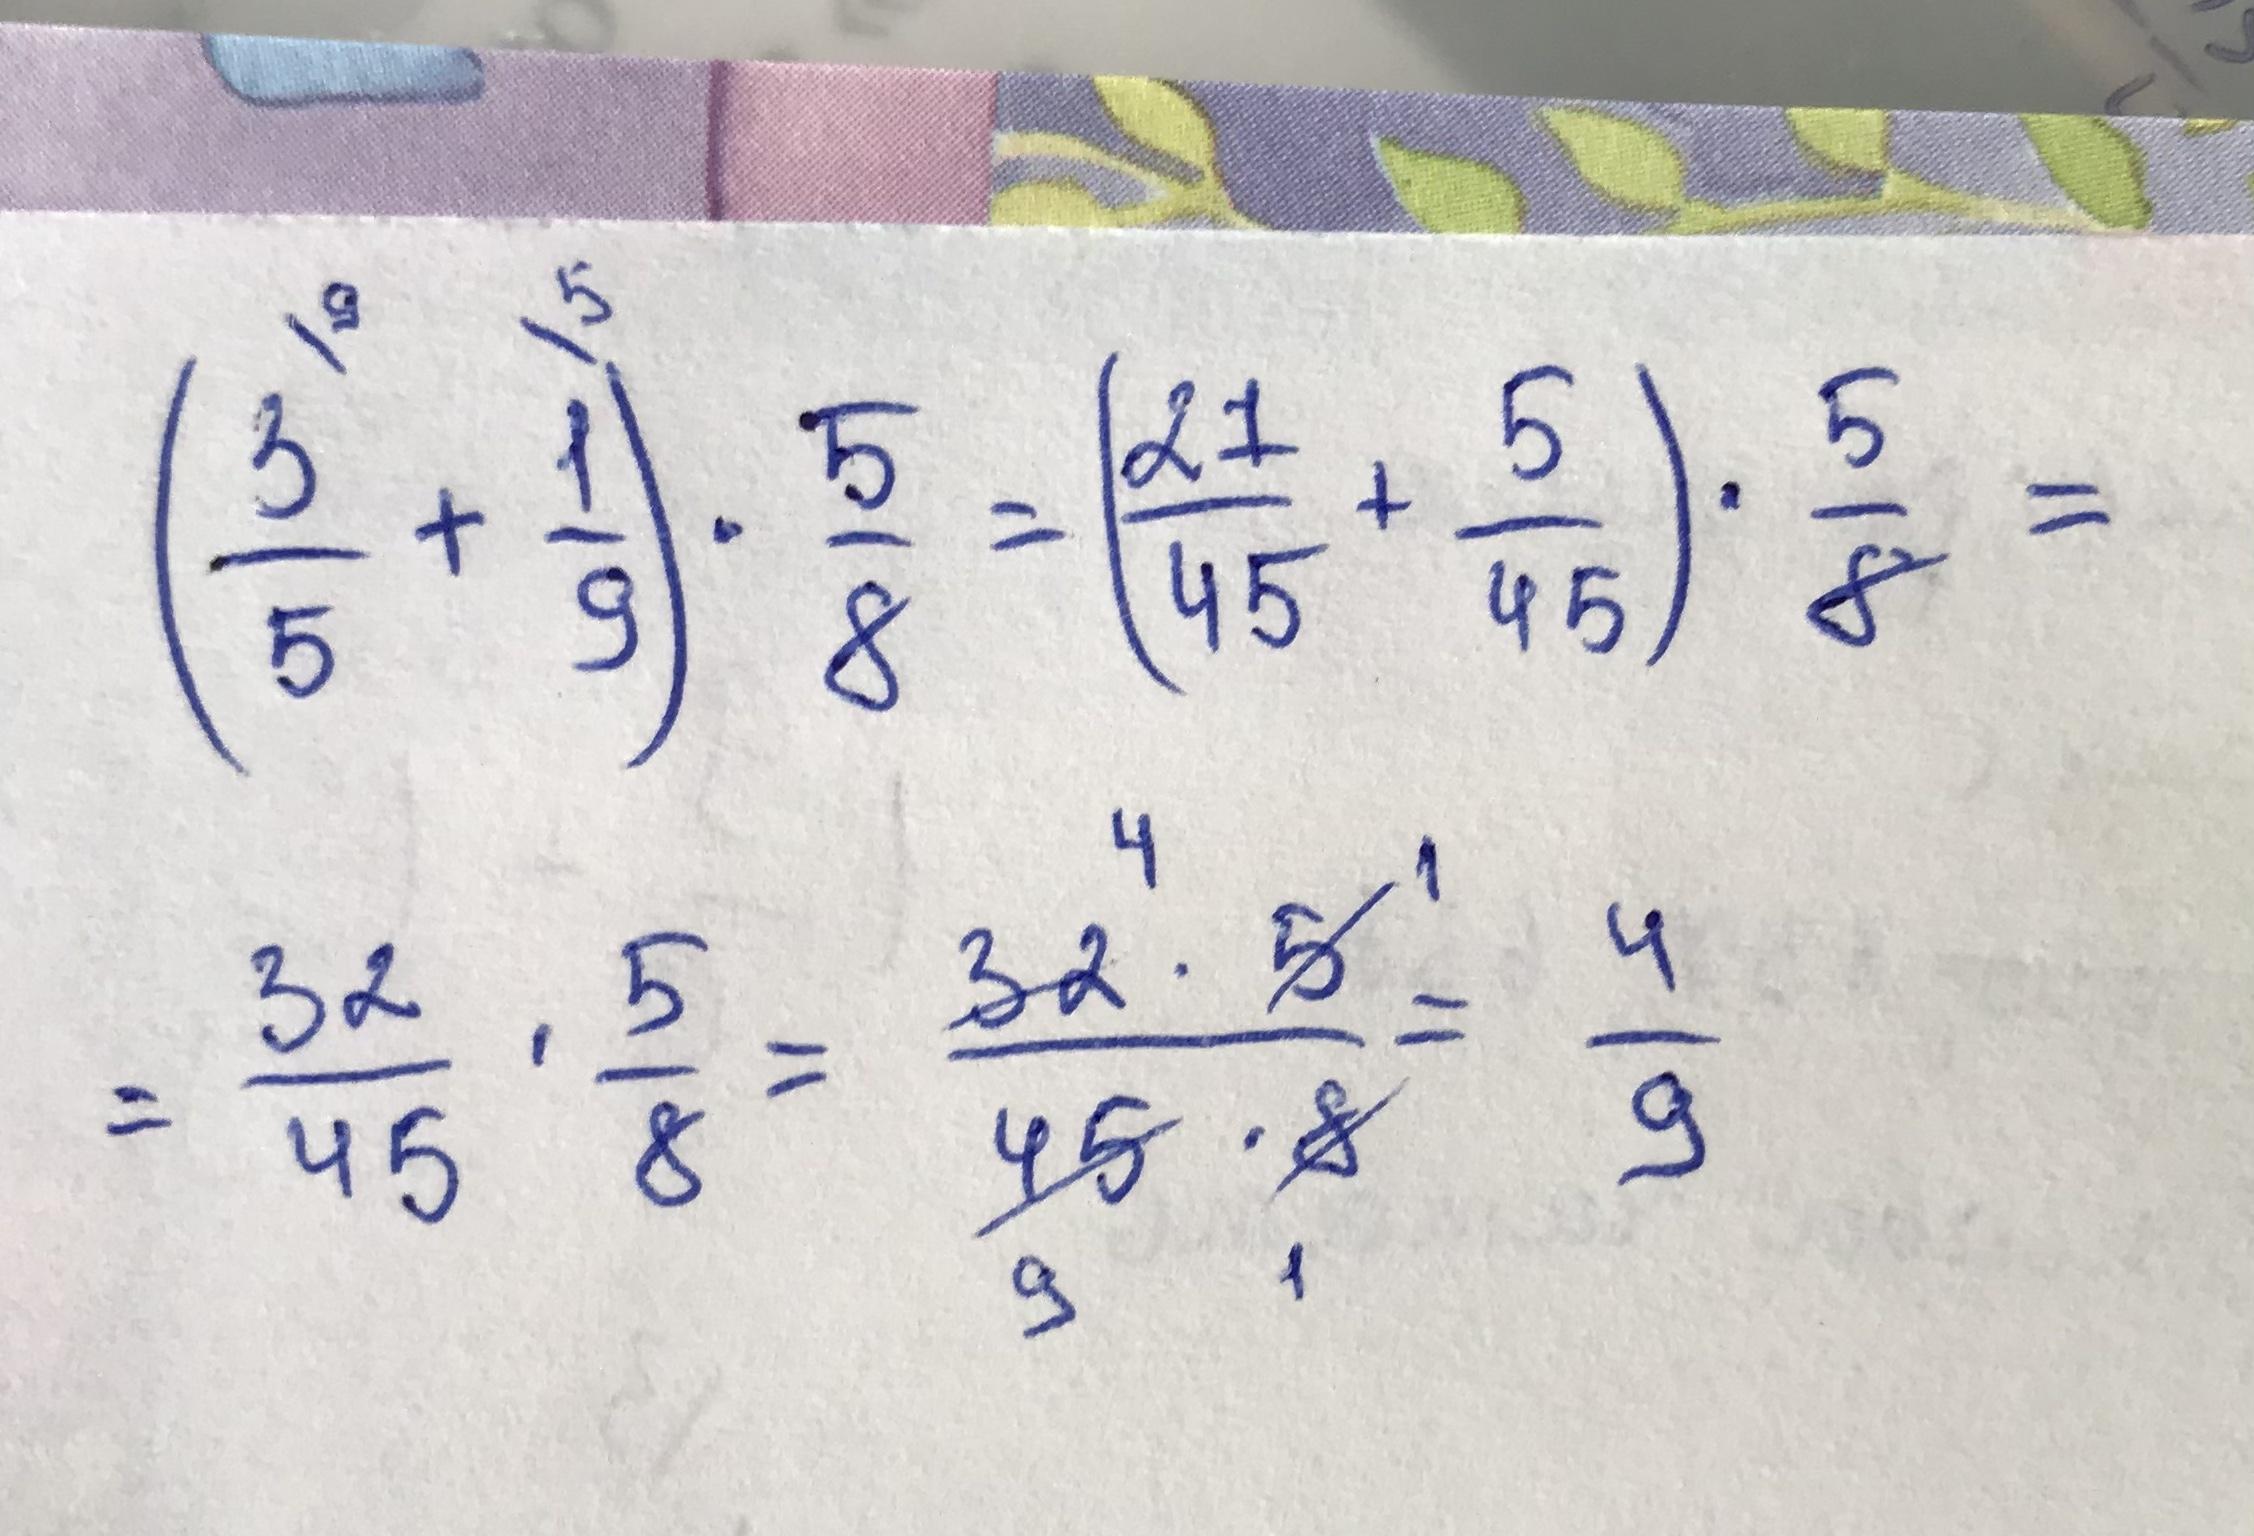 (3/5 \9 + 1/9 \5) · 5/8 = (27/45 + 5/45) · 5/8 =
= 32/45 · 5/8 = 32 4 · 5 1 / 45 9 · 8 1 = 4/9